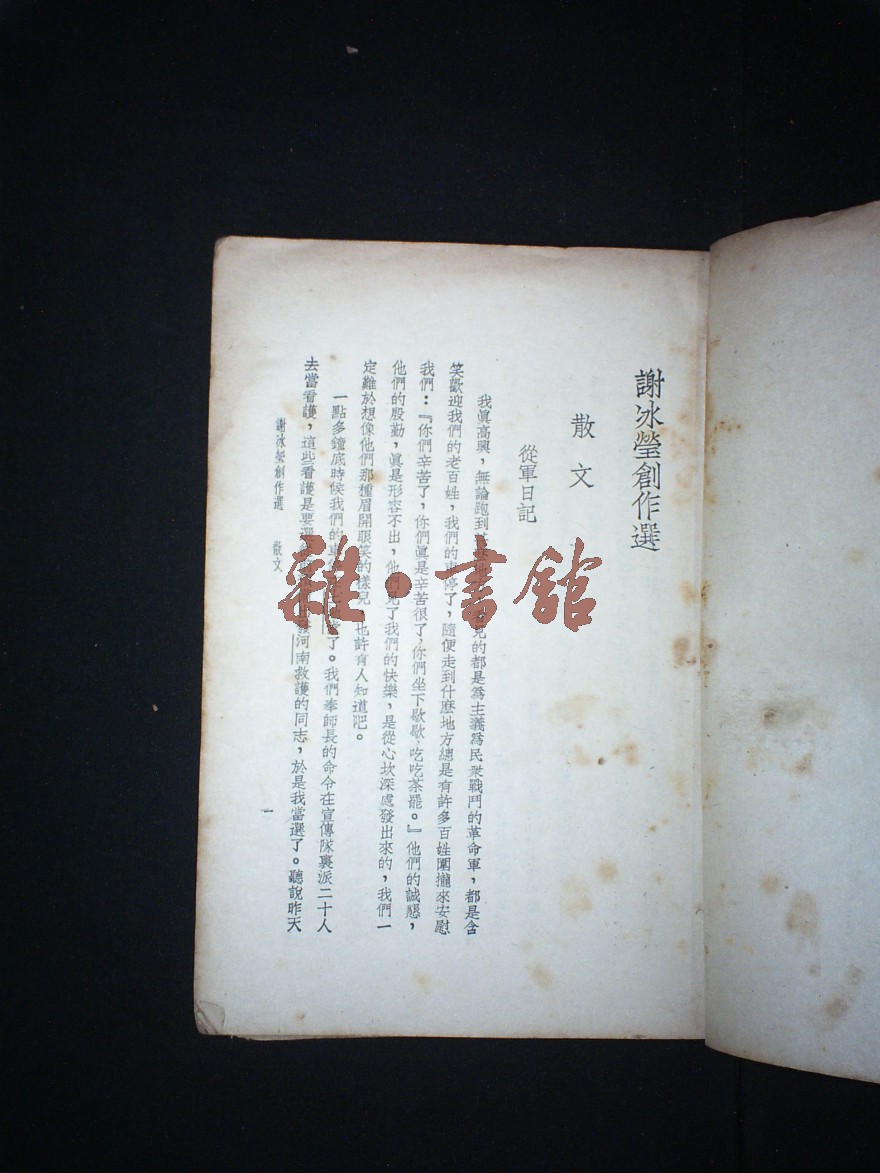 謝冰瑩創作選
散文
從軍日記
我眞高興，無論跑到什麼地 見的都是為主義為民衆戰鬥的革命軍，都是含
笑歡迎我們的老百姓，我們的車停了，隨便走到什麼地方總是有許多百姓圍攏來安慰
我們：『你們辛苦了，你們眞是辛苦很了，你們坐下歇歇，吃吃茶罷。』他們的誠懇，
他們的殷勤，眞是形容不出，他們見了我們的快樂，是從心坎深處發出來的，我們一
定難於想像他們那種眉開眼笑的樣兒，也許有人知道吧。
一點多鐘底時候我們的車 了。我們奉師長的命令在宣傳隊裏派二十人
去當看護，這些看護是要選 河南救護的同志，於是我當選了。聽說昨天
謝冰瑩創作選 散文
一
雜·書館